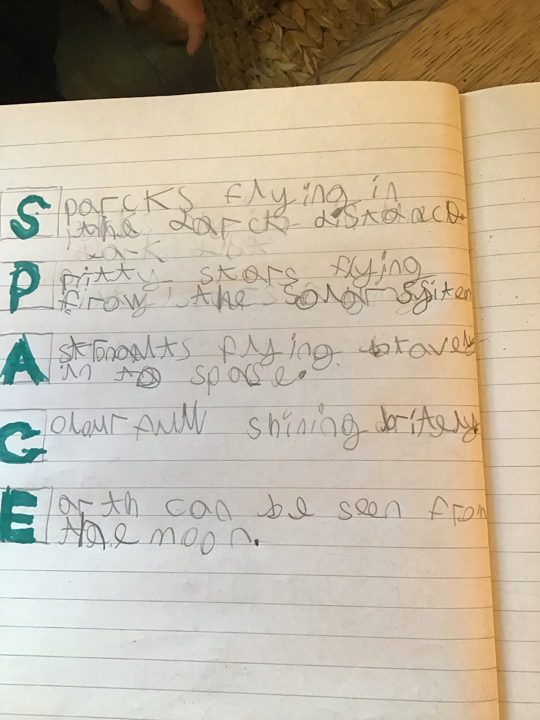 Sparcks flying in
the darck distance.
Pritty stars flying
firow the Solor System
Astronalts flying bravely
in to space.
Colourfull shining britely
Earth can be seen from
the moon.